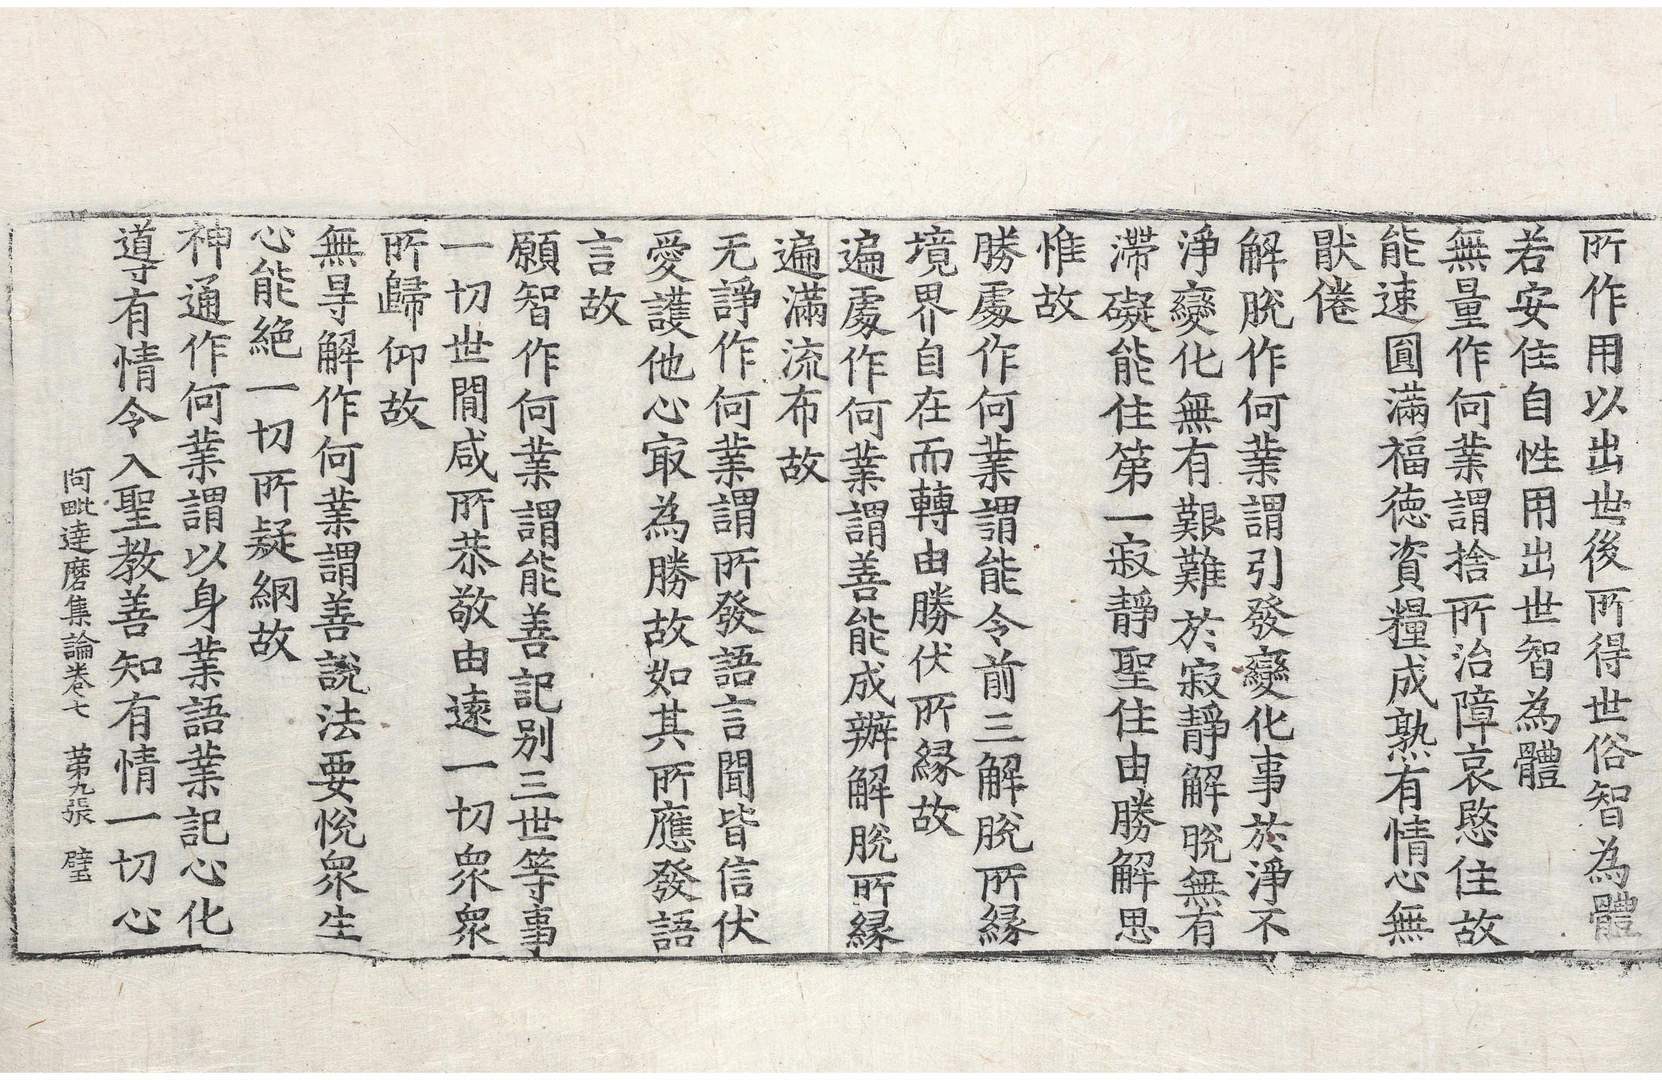 所作用以出世後所得世俗智為體
若安住自性用出世智為體
無量作何業謂捨所治障哀愍住故
能速圓滿福德資糧成熟有情心無
猒倦
解脫作何業謂引發變化事於淨不
淨變化無有艱難於寂靜解脫無有
滯礙能住第一寂靜聖住由勝解思
惟故
勝處作何業謂能令前三解脫所緣
境界自在而轉由勝伏所緣故
遍處作何業謂善能成辦解脫所緣
遍滿流布故
无諍作何業謂所發語言聞皆信伏
愛護他心冣為勝故如其所應發語
言故
願智作何業謂能善記別三世等事
一切世間咸所恭敬由達一切眾眾
所歸仰故
無㝵解作何業謂善說法要悅眾生
心能絕一切所疑網故
神通作何業謂以身業語業記心化
導有情令入聖教善知有情一切心
阿毗達磨集論卷七　苐九張　璧